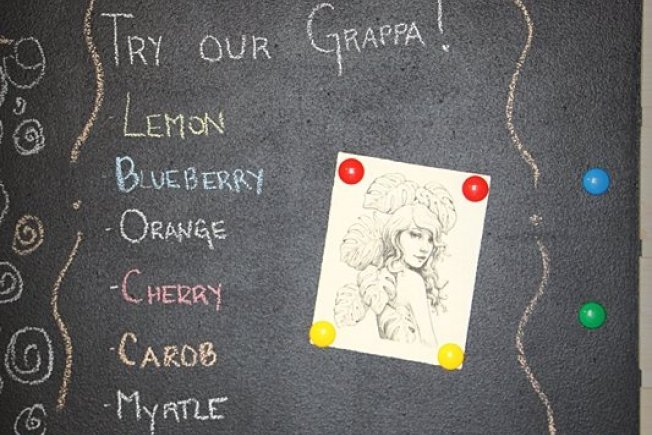 Try our Grappa!
- Lemon
- Blueberry
- Orange
- Cherry
- Carob
- Myrtle